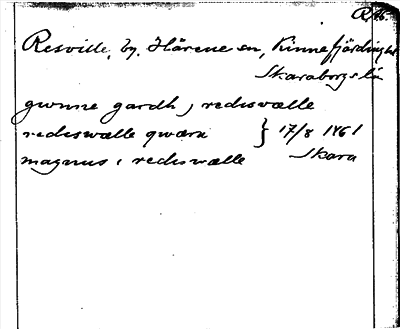 R 16.
Resville, by, Härene sn, Kinnefjärdings hd
Skaraborgs län
gwnne gardh, rediswælle
rediswælle qwærn } 17/8 1461
magnus i rediswælle Skara